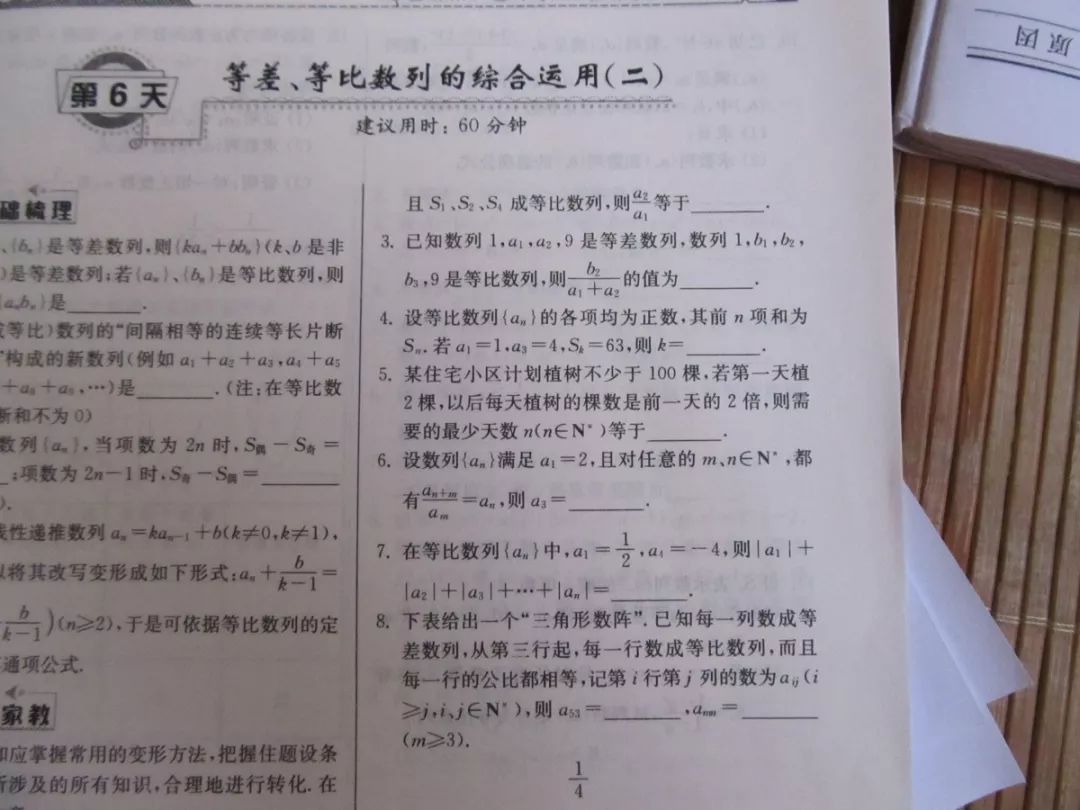 第6天
等差、等比数列的综合运用(二)
建议用时:60分钟
础梳理
{bₙ}是等差数列,则{kaₙ+bbₙ}(k、b是非
)是等差数列;若{aₙ}、{bₙ}是等比数列,则
{aₙbₙ}是________.
等比)数列的“间隔相等的连续等长片断
”构成的新数列(例如a₁+a₂+a₃,a₄+a₅
+a₈+a₉,…)是________.(注:在等比数
断和不为0)
数列{aₙ},当项数为2n时,S偶-S奇=
;项数为2n-1时,S奇-S偶=________
).
线性递推数列aₙ=kaₙ₋₁+b(k≠0,k≠1),
以将其改写变形成如下形式:aₙ+b/(k-1)=
b/(k-1))(n≥2),于是可依据等比数列的定
通项公式.
家教
和应掌握常用的变形方法,把握住题设条
所涉及的所有知识,合理地进行转化.在
且S₁、S₂、S₄成等比数列,则a₂/a₁等于________.
3. 已知数列1,a₁,a₂,9是等差数列,数列1,b₁,b₂,
b₃,9是等比数列,则b₂/(a₁+a₂)的值为________.
4. 设等比数列{aₙ}的各项均为正数,其前n项和为
Sₙ.若a₁=1,a₃=4,Sₖ=63,则k=________.
5. 某住宅小区计划植树不少于100棵,若第一天植
2棵,以后每天植树的棵数是前一天的2倍,则需
要的最少天数n(n∈N*)等于________.
6. 设数列{aₙ}满足a₁=2,且对任意的m、n∈N*,都
有aₙ₊ₘ/aₘ=aₙ,则a₃=________.
7. 在等比数列{aₙ}中,a₁=1/2,a₄=-4,则|a₁|+
|a₂|+|a₃|+…+|aₙ|=________.
8. 下表给出一个“三角形数阵”.已知每一列数成等
差数列,从第三行起,每一行数成等比数列,而且
每一行的公比都相等,记第i行第j列的数为aᵢⱼ(i
≥j,i、j∈N*),则a₅₃=________,aₘₙ=________
(m≥3).
1/4
原因